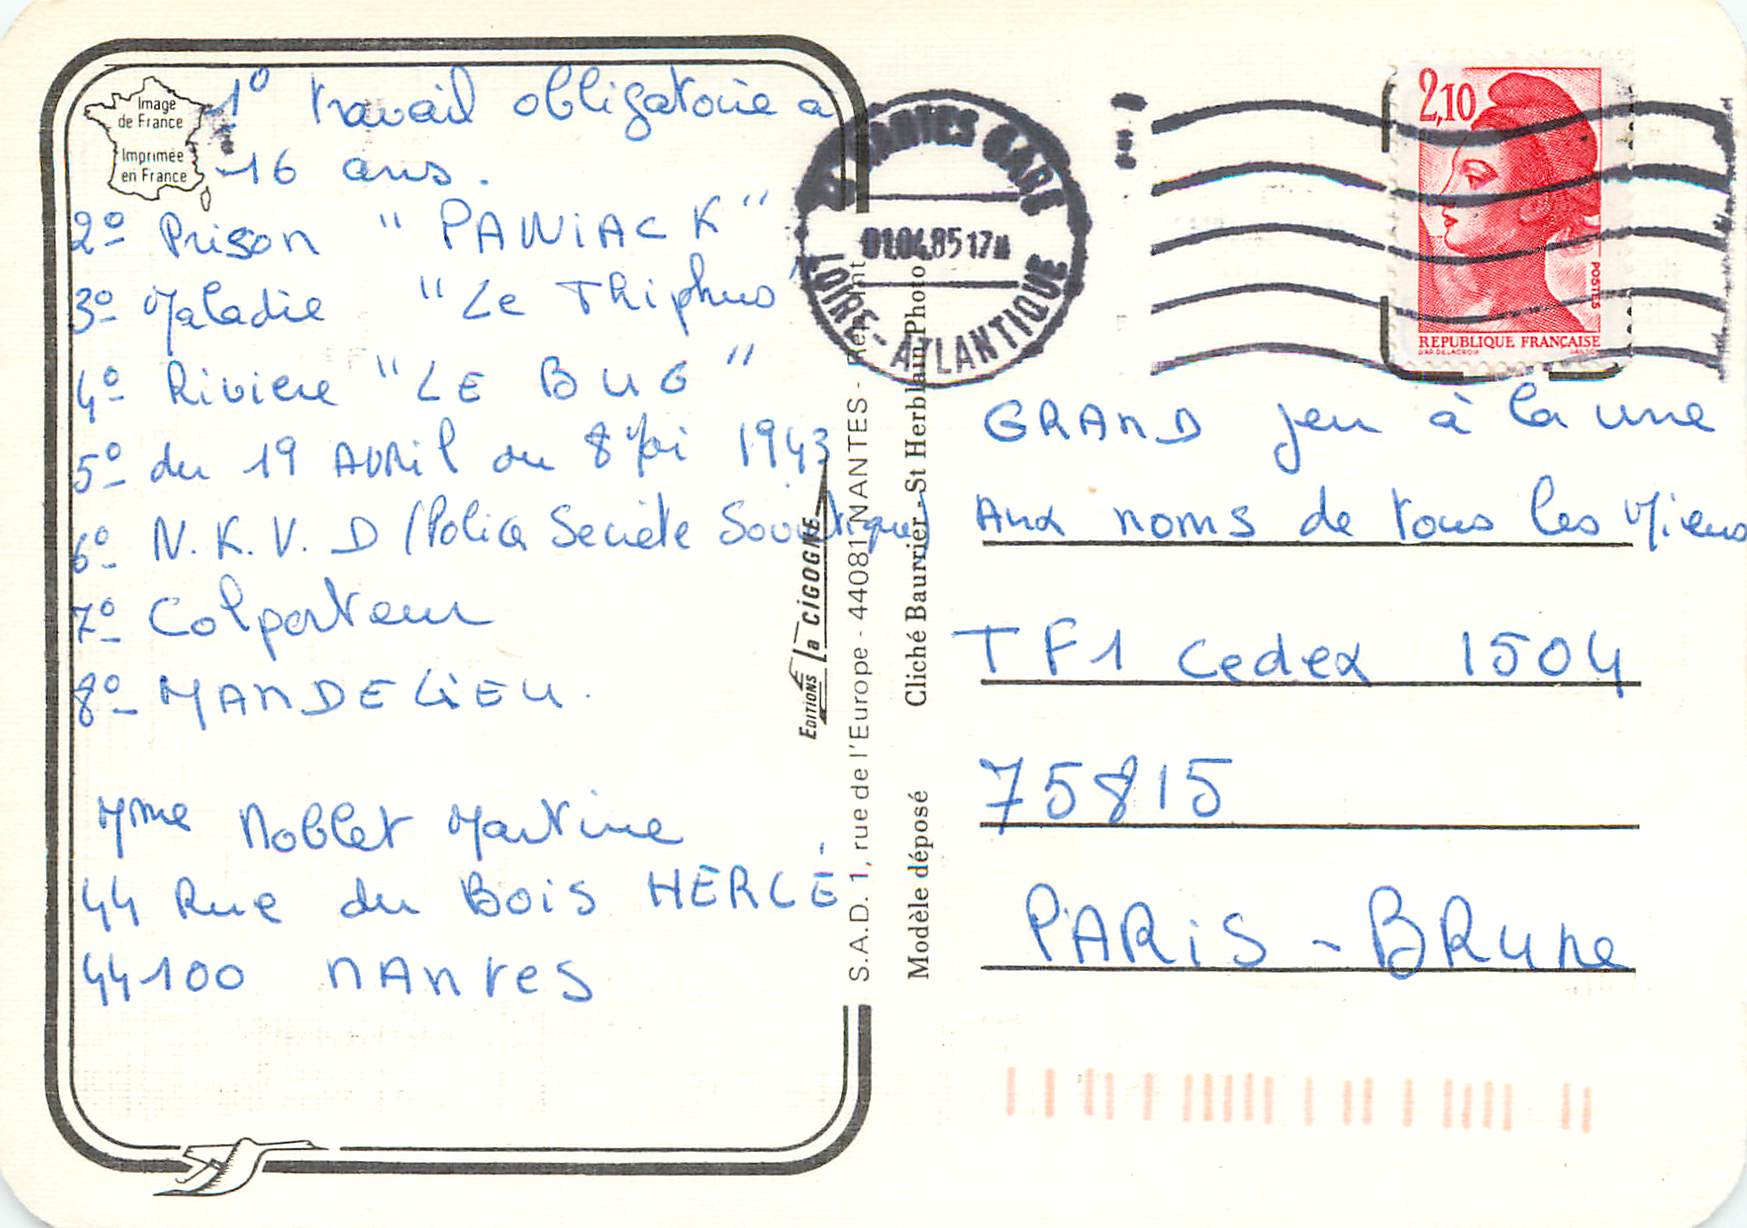 Image
de France
Imprimée
en France
1º travail obligatoire a
16 ans.
2º Prison " PAWIACK "
3º Maladie " Le Thiphus "
4º Riviere " LE BUG "
5º du 19 AVRil au 8 Mai 1943
6º N.K.V.D (Police Secrète Soviètique)
7º Colporteur
8º MANDELiEU.
Mme Noblet Martine
44 Rue du Bois HERCÉ
44100 NAntes
EDITIONS La CIGOGNE
S.A.D. 1, rue de l'Europe - 44081 NANTES -
Modèle déposé Cliché Baurrier - St Herblain Photo
NANTES GARE
01.04.85 17H
LOIRE-ATLANTIQUE
2,10
POSTES
REPUBLIQUE FRANÇAISE
D'AP. DELACROIX
GRAND jeu à la une
Aux noms de tous les Miens
TF1 Cedex 1504
75815
PARiS - BRune